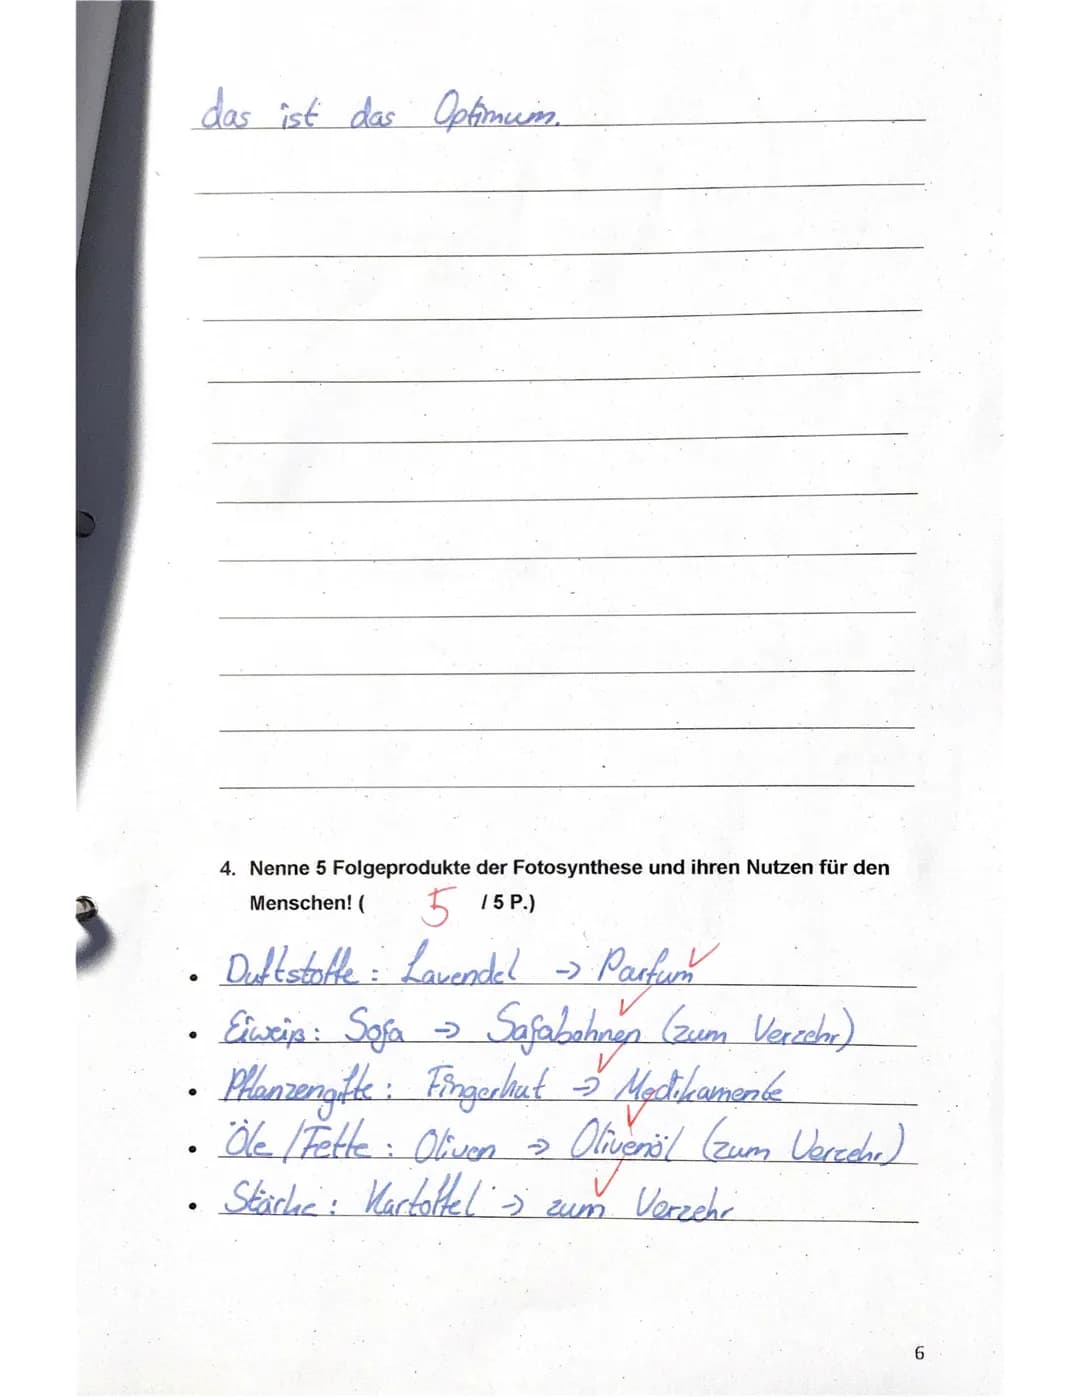 das ist das Optimum.
4. Nenne 5 Folgeprodukte der Fotosynthese und ihren Nutzen für den
Menschen! ( 5 / 5 P.)
• Duftstoffe: Lavendel → Parfum
• Eiweiß: Sofa → Safabohnen (zum Verzehr)
• Pflanzengifte: Fingerhut → Medikamente
• Öle/Fette: Oliven → Olivenöl (zum Verzehr)
• Stärke: Kartoffel → zum Verzehr
6